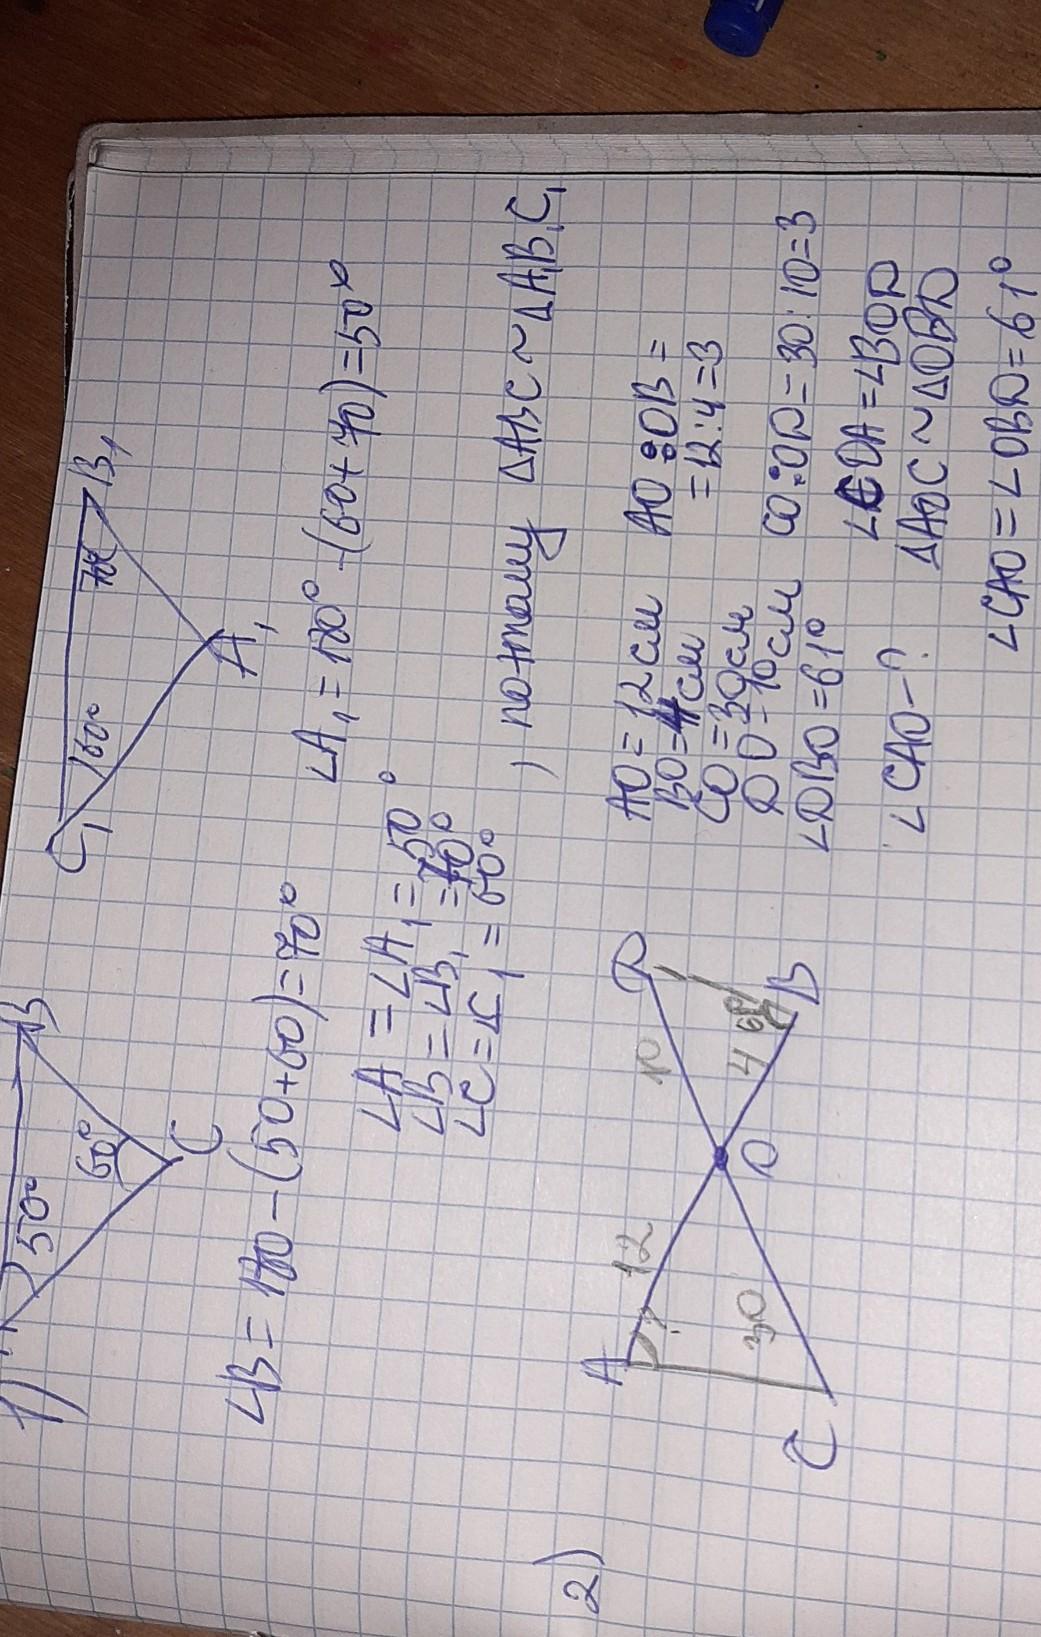 1)
B
50°
60°
C
C₁
60°
70°
B₁
A₁
∠B = 180 - (50+60) = 70°
∠A₁ = 180° - (60+70) = 50°
∠A = ∠A₁ = 50°
∠B = ∠B₁ = 70°
∠C = ∠C₁ = 60°
, потому ΔABC ~ ΔA₁B₁C₁
2)
A
12
?
30
C
O
D
10
4
B
AO = 12 см
BO = 4 см
CO = 30 см
DO = 10 см
∠DBO = 61°
∠CAO - ?
AO : OB =
= 12:4 = 3
CO : OD = 30:10 = 3
∠COA = ∠BOD
ΔAOC ~ ΔOBD
∠CAO = ∠OBD = 61°